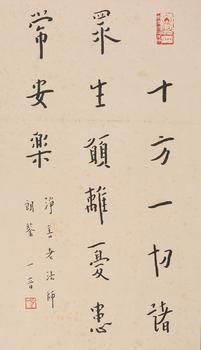 十方一切諸
眾生願離憂患
常安樂
淨善老法師
朗鑒 一音